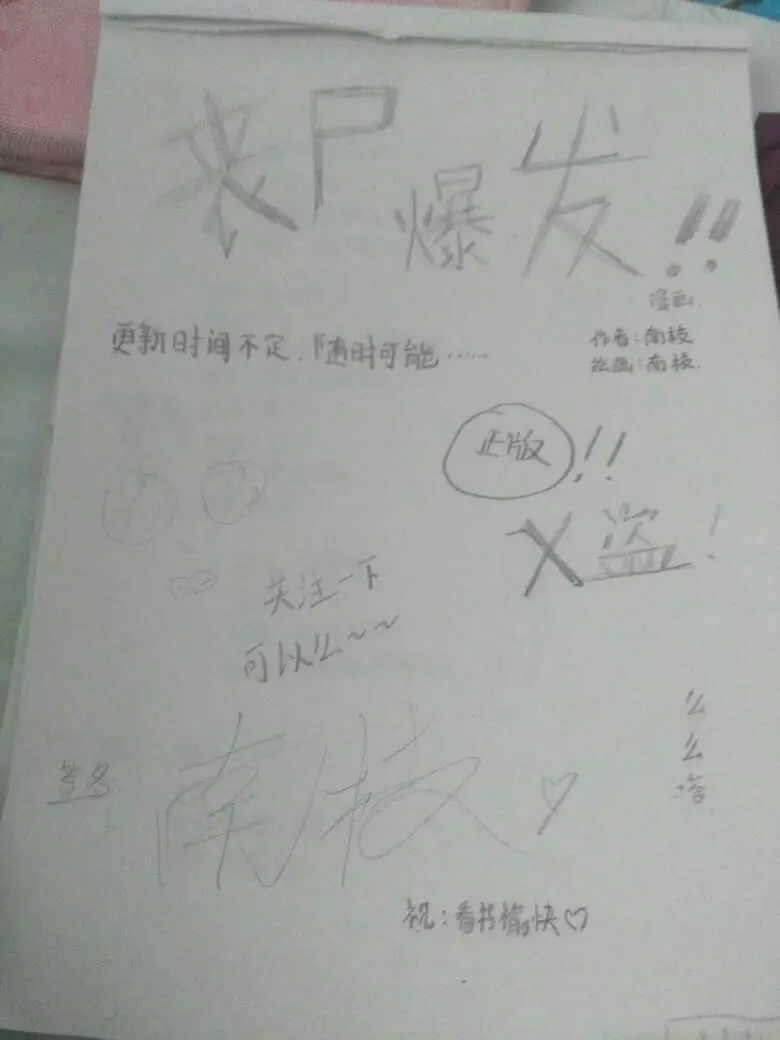 丧尸爆发!!
漫画.
更新时间不定,随时可能……
作者:南枝
绘画:南枝.
正版!!
X盗!
关注一下
可以么~~
么
么
签名:
南枝♡
祝:看书愉快♡